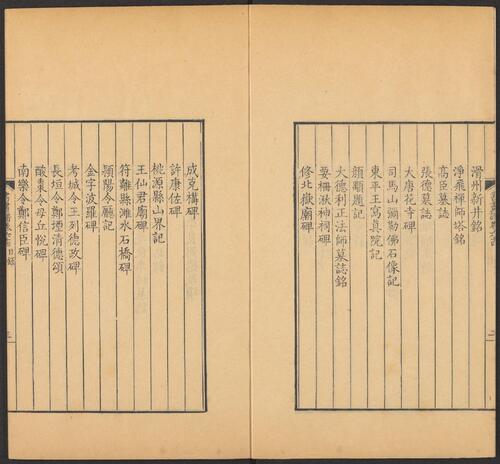 滑州新井銘
淨飛禪師塔銘
高臣墓誌
張德墓誌
大唐花寺碑
司馬山彌勒佛石像記
東平王寫真院記
顏顒題記
大德利正法師墓誌銘
要柵湫神祠碑
修北嶽廟碑
二
成克構碑
許康佐碑
桃源縣山界記
王仙君廟碑
符離縣濉水石橋碑
潁陽令廳記
金字波羅碑
考城令王列德政碑
長垣令鄭堙清德頌
酸棗令毋丘悅碑
南樂令鄭信臣碑
三